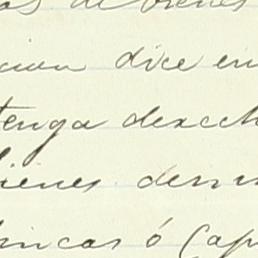 de bienes
cion dice en
tenga derech
bienes demas
fincas ó Cap